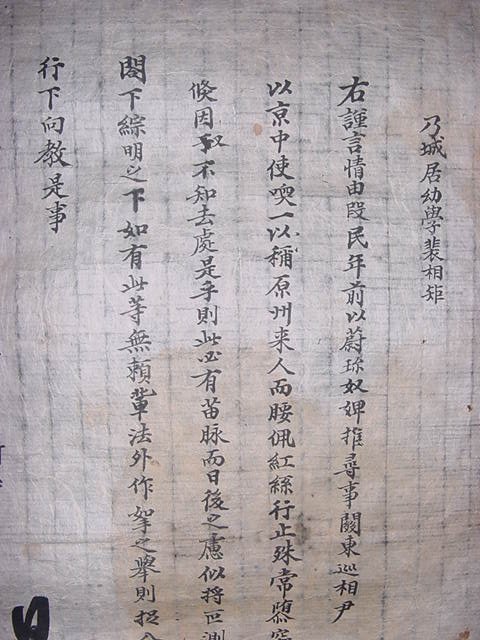 乃城居幼學裴相矩
右謹言情由段民年前以蔚珎奴婢推尋事關東巡相尹
以京中使喚一以稱原州来人而腰佩紅絲行止殊常
倏因不知去處是乎則此必有苗脉而日後之慮似將叵測
閤下綜明之下如有此等無頼輩法外作挐之舉則
行下向教是事